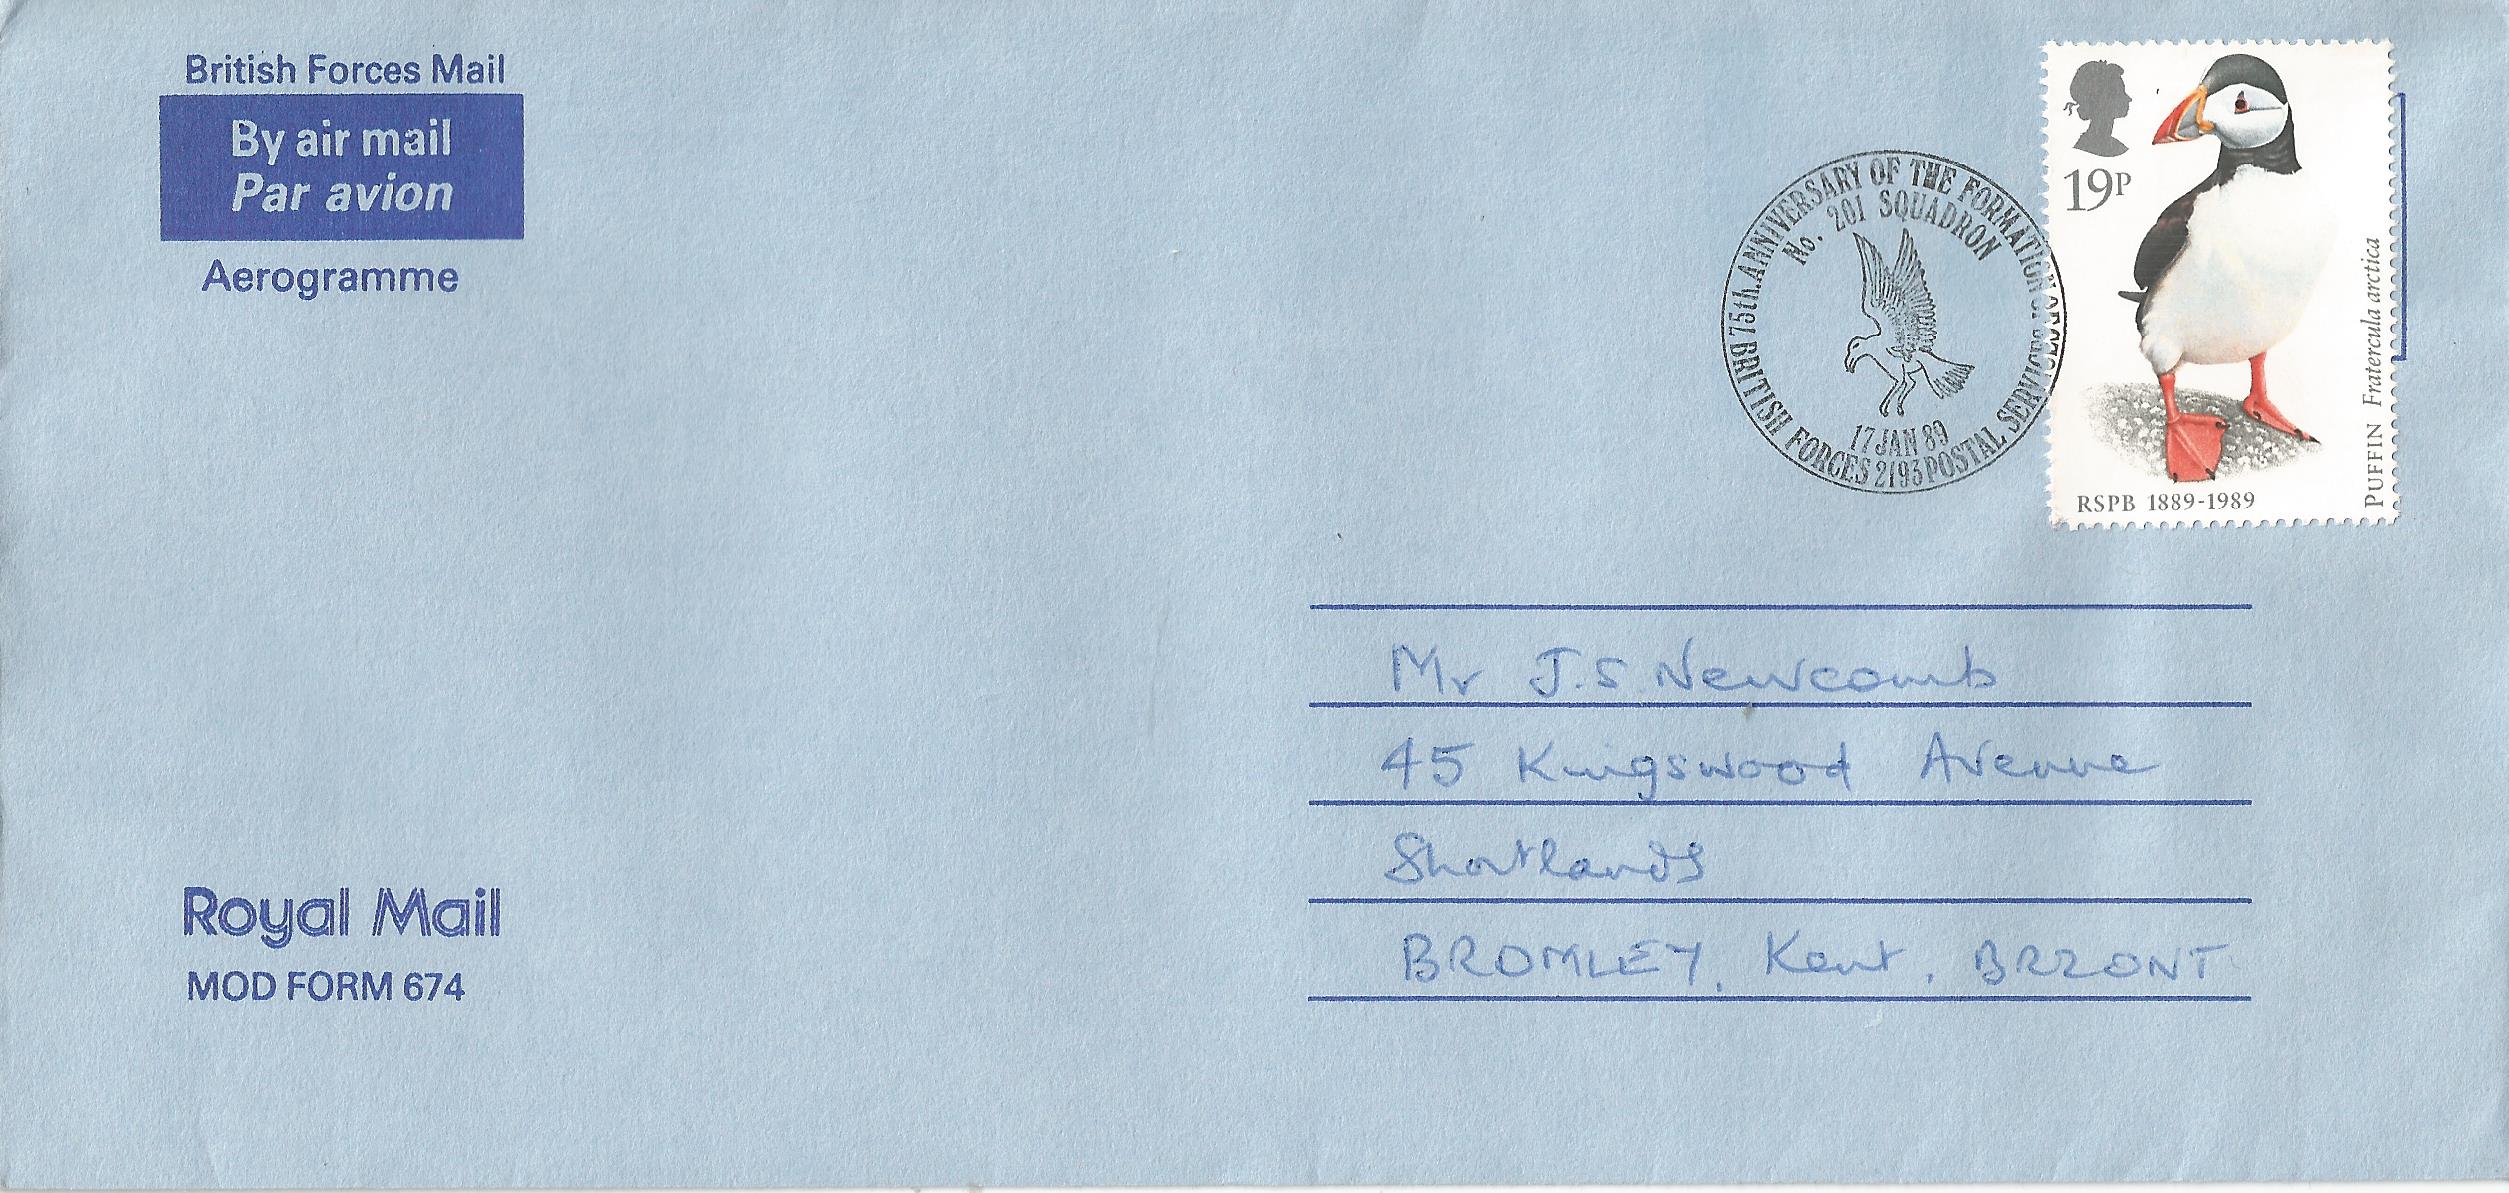 British Forces Mail
By air mail
Par avion
Aerogramme
75th. ANNIVERSARY OF THE FORMATION OF
No. 201 SQUADRON
17 JAN 89
BRITISH FORCES 2193 POSTAL SERVICES
19P
PUFFIN Fratercula arctica
RSPB 1889-1989
Mr J.S. Newcomb
45 Kingswood Avenue
Shortlands
BROMLEY, Kent, BR2 0NT
Royal Mail
MOD FORM 674